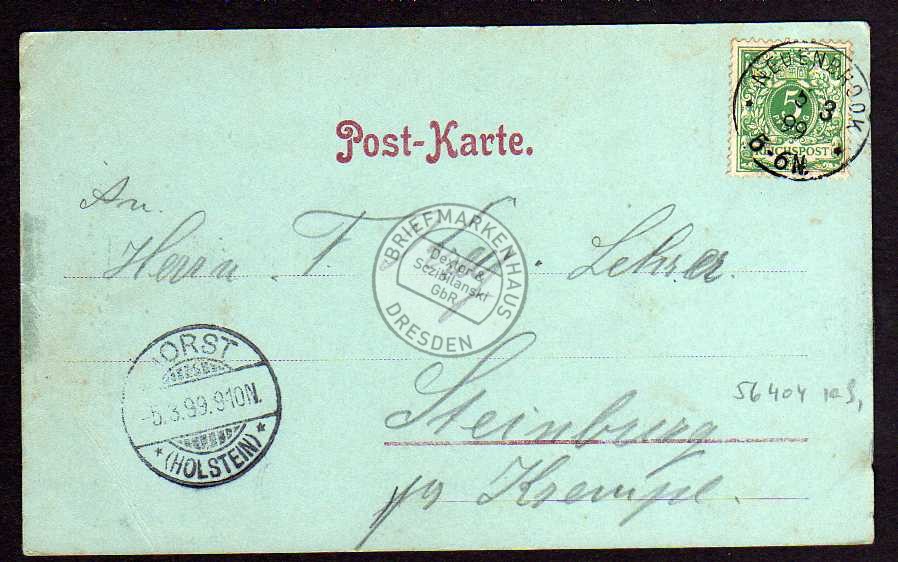 NEUENBROOK
5 3
99
5-6N.
5
REICHSPOST
Post-Karte.
An
Herrn F. Lehrer.
BRIEFMARKENHAUS
Dexler &
Sczibilanski
GbR
DRESDEN
HORST
-5.3.99.9-10N.
(HOLSTEIN)
56404
Steinburg
pr Krempe.